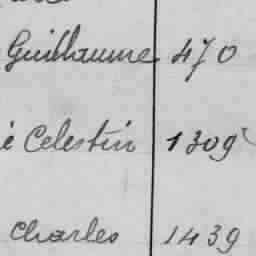 Guillaume 470
é Celestin 1309
Charles 1439